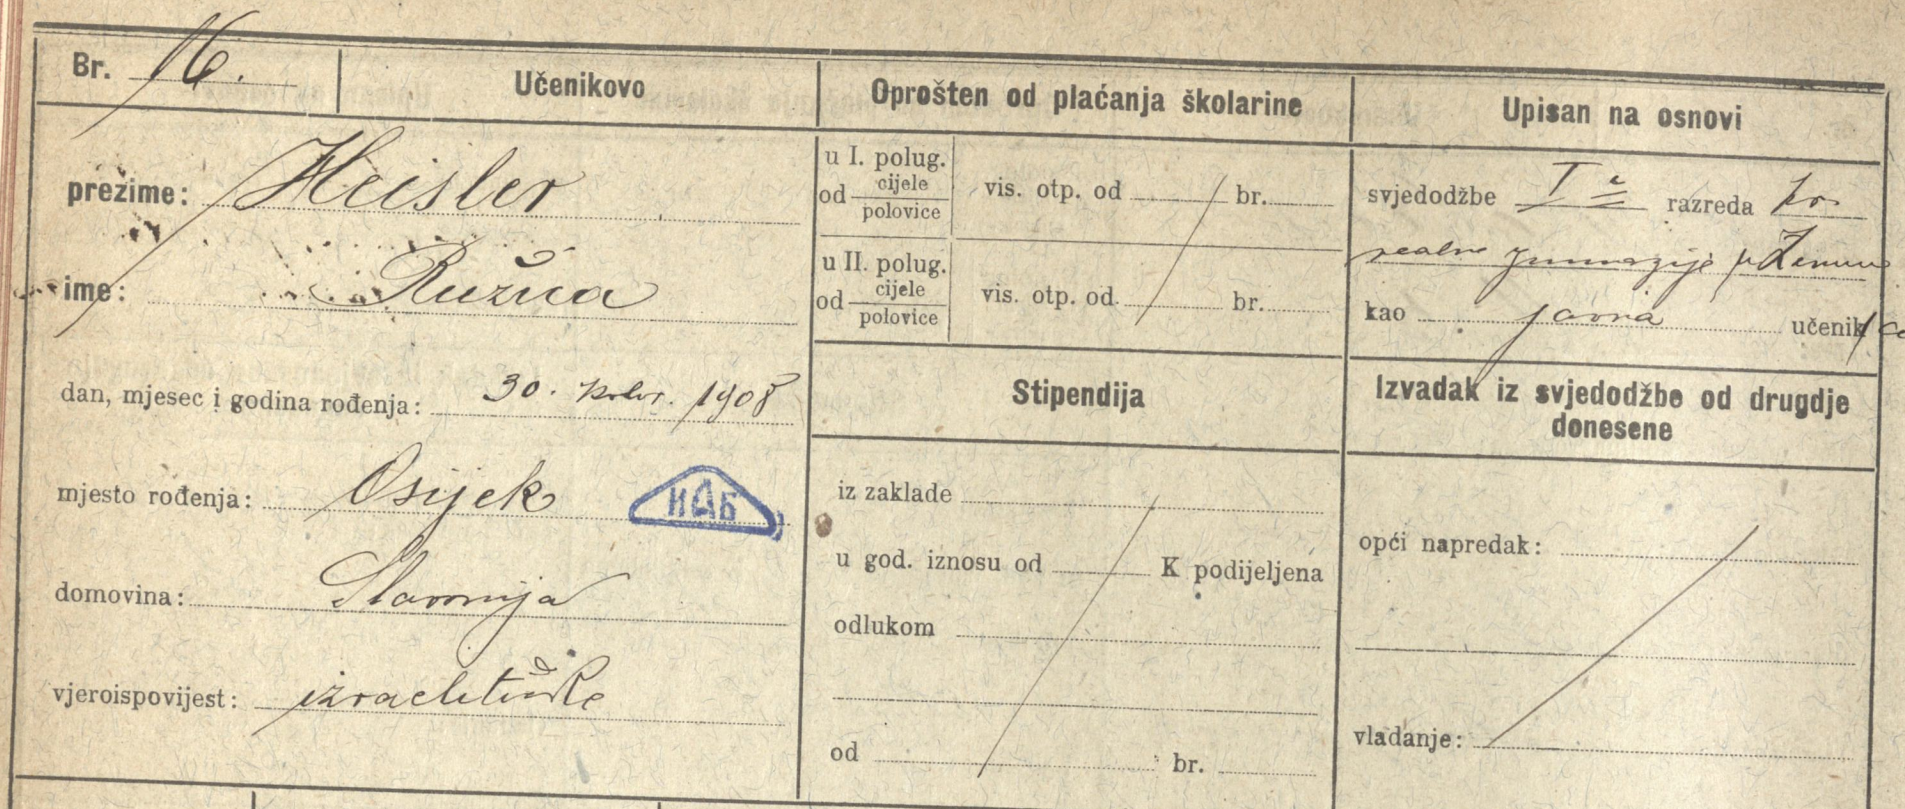 Br. 16.
Učenikovo
prezime: Heisler
ime: Ružica
dan, mjesec i godina rođenja: 30. 1908
mjesto rođenja: Osijek
ИАБ
domovina: Slavonija
vjeroispovijest: izraelitičke
Oprošten od plaćanja školarine
u I. polug.
od cijele
polovice
vis. otp. od br.
u II. polug.
od cijele
polovice
vis. otp. od br.
Stipendija
iz zaklade
u god. iznosu od K podijeljena
odlukom
od br.
Upisan na osnovi
svjedodžbe I a razreda kr.
realne gimnazije u Zemunu
kao javna učenik/ca
Izvadak iz svjedodžbe od drugdje
donesene
opći napredak:
vladanje: